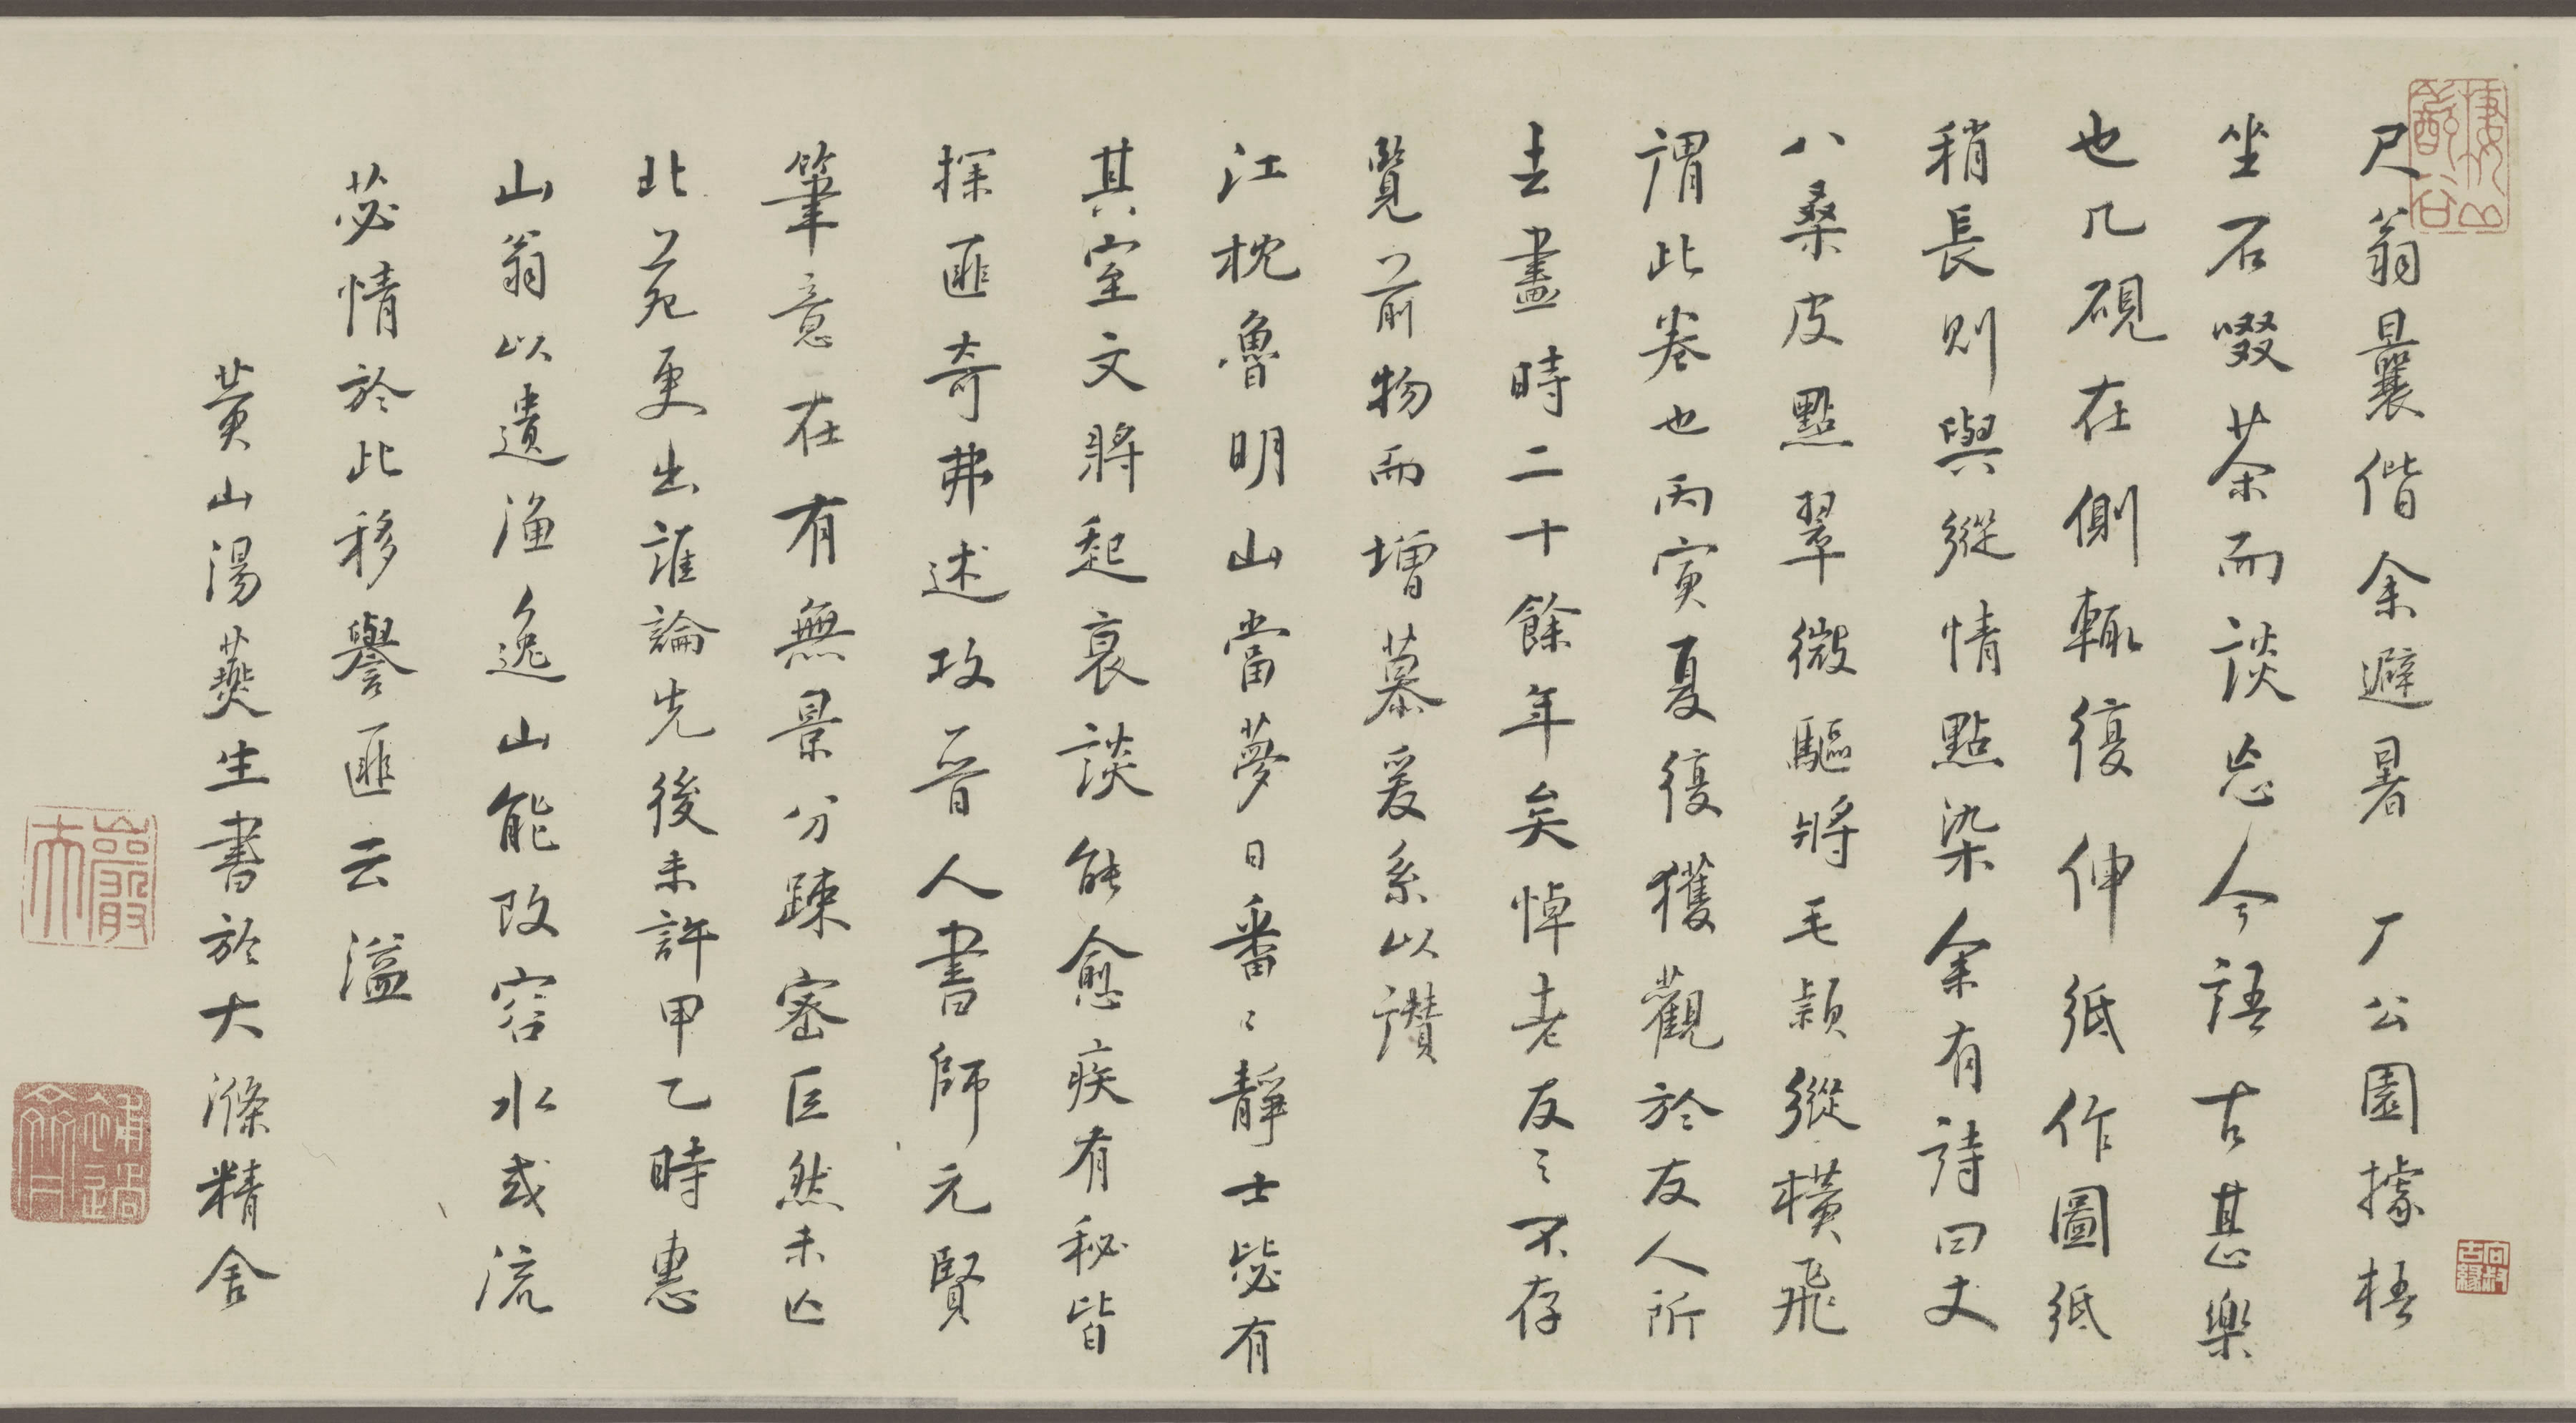 尺翁曩偕余避暑丁公園據梧
坐石啜茶而談忘今語古甚樂
也几硯在側輒復伸紙作圖紙
稍長則與縱情點染余有詩曰丈
八桑皮點翠微驅將毛穎縱橫飛
謂此卷也丙寅夏復獲觀於友人所
去畫時二十餘年矣悼老友之不存
覽前物而增慕爰系以讚
江枕魯明山當夢日番〻靜士毖有
其室文將起衰談能愈疾有秘皆
探匪奇弗述攻晉人書師元賢
筆意在有無景分疎密巨然未亡
北苑更出誰論先後未許甲乙時惠
山翁以遺漁逸山能改容水或流
苾情於此移譽匪云溢
黃山湯燕生書於大滌精舍